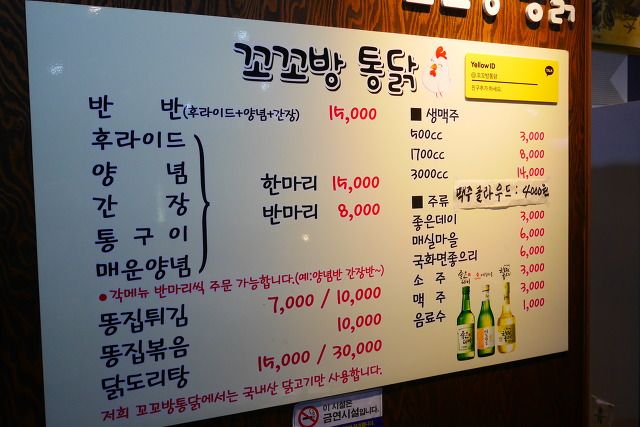 꼬꼬방 통닭
꼬꼬방 통닭
YellowID
@꼬꼬방통닭
친구추가 하세요
반 반(후라이드+양념+간장) 15,000
후라이드
양 념
간 장
통 구 이
매운양념
한마리 15,000
반마리 8,000
• 각메뉴 반마리씩 주문 가능합니다.(예:양념반 간장반~)
똥집튀김 7,000 / 10,000
똥집볶음 10,000
닭도리탕 15,000 / 30,000
저희 꼬꼬방통닭에서는 국내산 닭고기만 사용합니다.
■ 생맥주
500cc 3,000
1700cc 8,000
3000cc 14,000
■ 주류
맥주 클라우드 : 4000원
좋은데이 3,000
매실마을 6,000
국화면좋으리 6,000
소 주 3,000
맥 주 3,000
음료수 1,000
이 시설은
금연시설입니다.